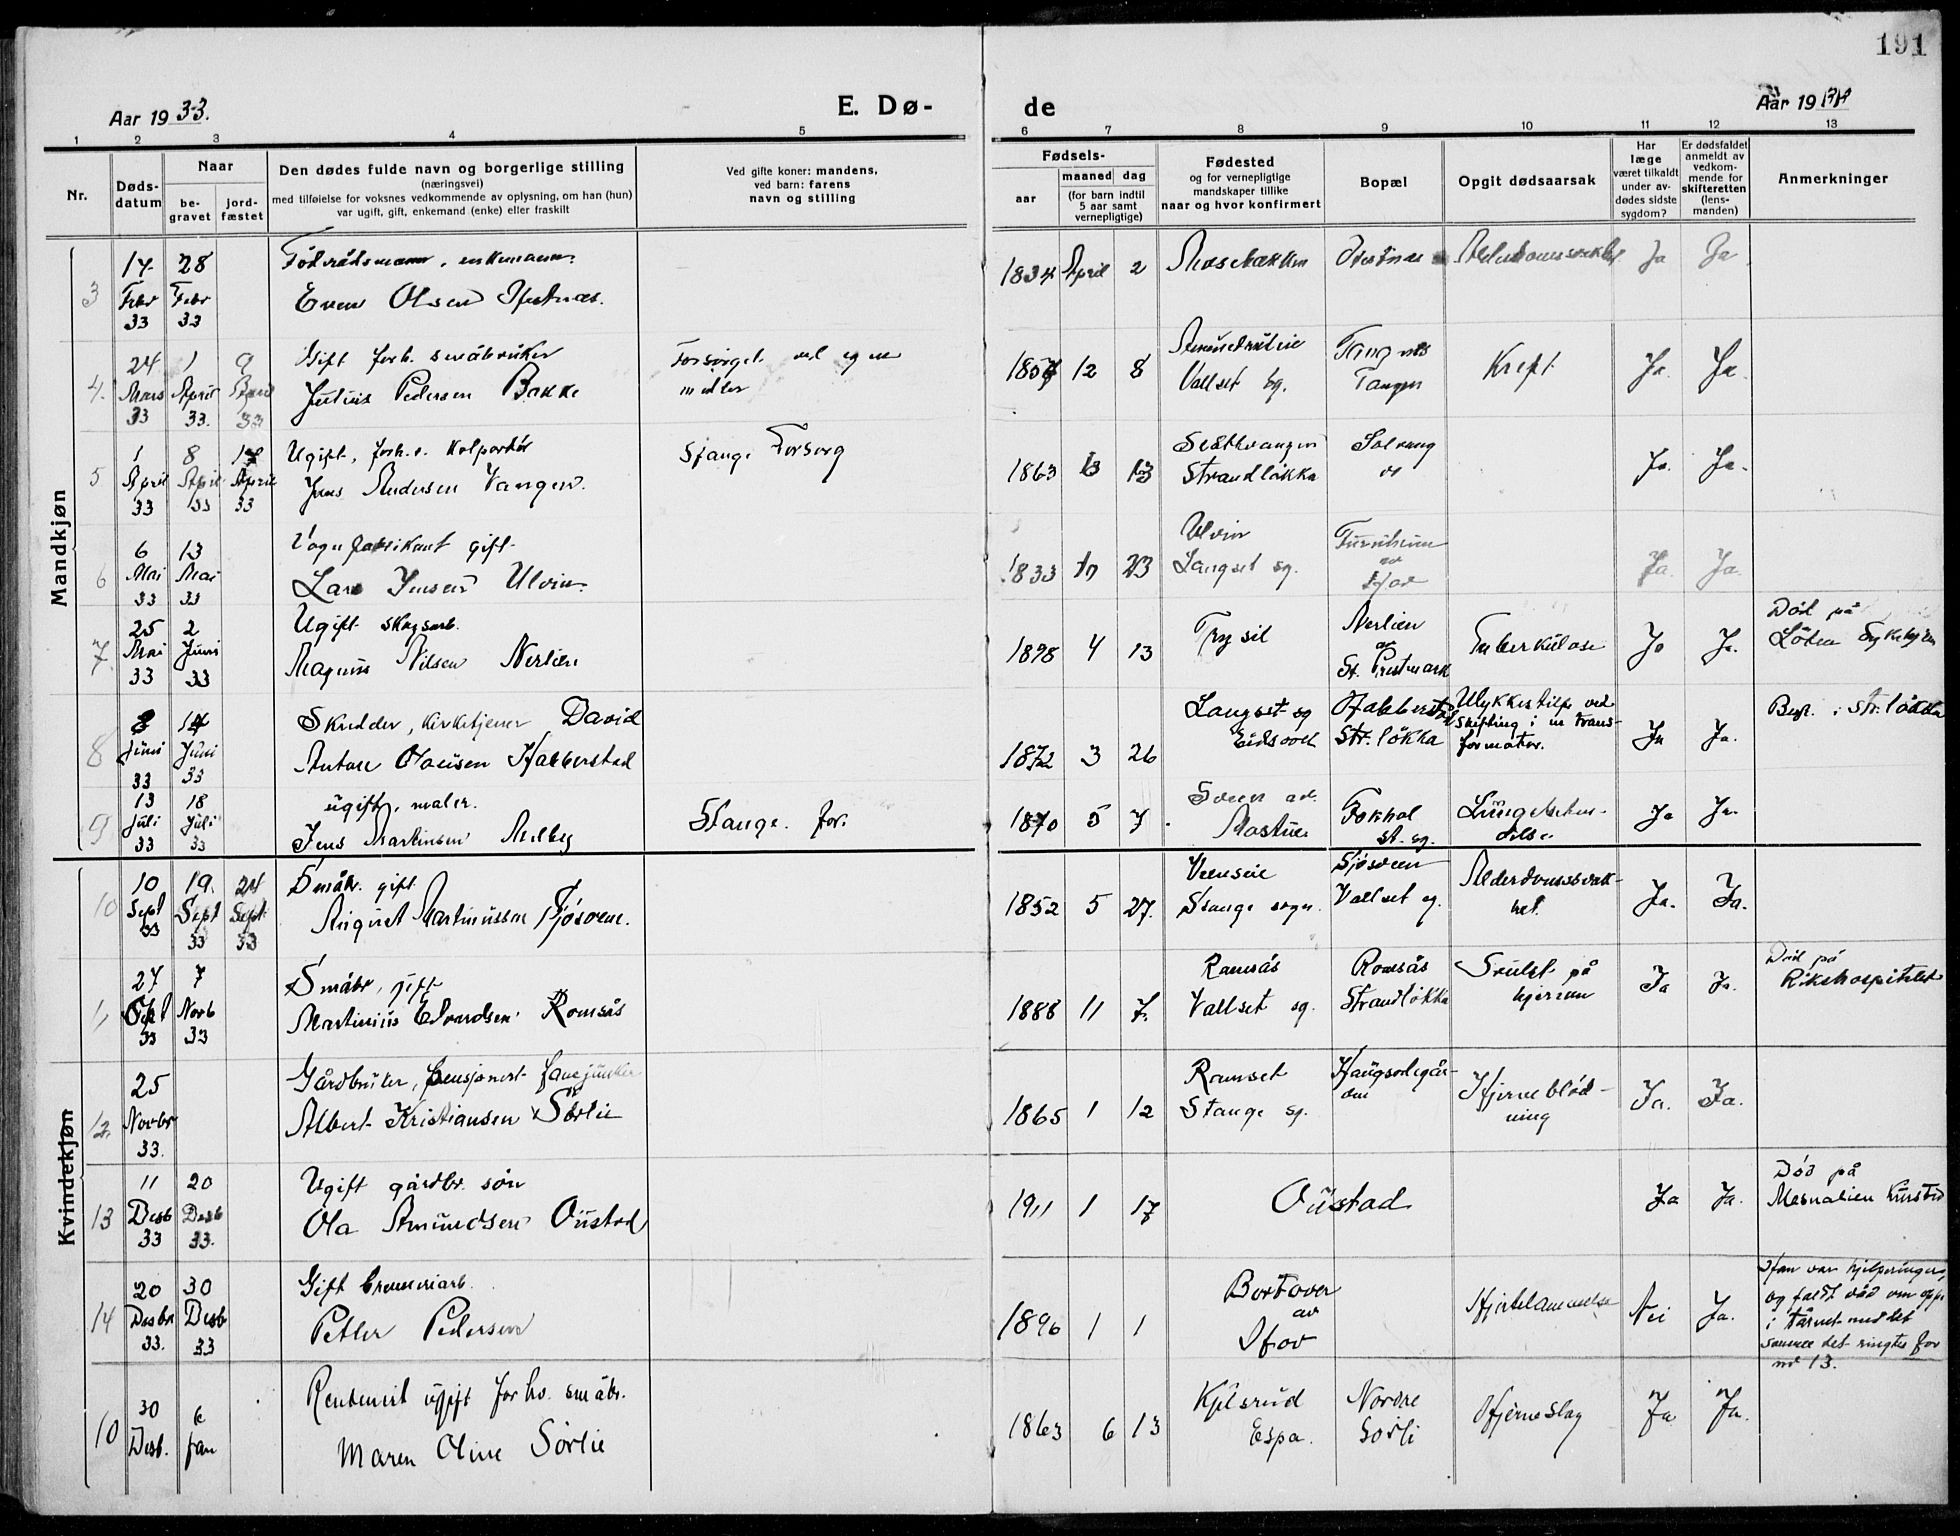 191
Aar 1933.
E. Dø-
de
Aar 19
1 2 3 4 5 6 7 8 9 10 11 12 13
Nr.
Døds-
datum
Naar
be-
gravet
jord-
fæstet
Den dødes fulde navn og borgerlige stilling
(næringsvei)
med tilføielse for voksnes vedkommende av oplysning, om han (hun)
var ugift, gift, enkemand (enke) eller fraskilt
Ved gifte koner: mandens,
ved barn: farens
navn og stilling
Fødsels-
aar
maaned dag
(for barn indtil
5 aar samt
vernepligtige)
Fødested
og for vernepligtige
mandskaper tillike
naar og hvor konfirmert
Bopæl
Opgit dødsaarsak
Har
læge
været tilkaldt
under av-
dødes sidste
sygdom?
Er dødsfaldet
anmeldt av
vedkom-
mende for
skifteretten
(lens-
manden)
Anmerkninger
Mandkjøn
3
14 Febr 33
28 Febr 33
Föderådsmann, enkemann.
Even Olsen
1834 April 2
Ja Ja
4.
24 Mars 33
1 April 33.
9 April 33
Gift forh. småbruker
Julius Pedersen Bakke
Forsörget ved egne
midler
12 8
Vallset sg.
Tangnes
Tangen
Kreft
Ja. Ja.
5
1 April 33
8 April 33
April 33
Ugift, forh.v. Kolportör
Jens Andersen Vangen.
Stange Forsorg
1863
Strandlökka
Solvang
Ja. Ja.
6
6 Mai 33
13 Mai 33
Vognfabrikant gift.
Lars Jensen Ulvin.
1833 10 23
Ulvin
Langset sg.
Furuheim
av
Ja. Ja.
7.
25 Mai 33
2 Juni 33
Ugift skogsarb.
Magnus Nilsen Nerlien
1898 4 13
Trysil
Nerlien
av
St. Prestmark
Tuberkulose
Ja Ja.
Död på
Löten Sykehjem
8
Juni 33
14 Juni 33
Skredder, kirketjener David
Anton Olausen Habberstad
1872 3 26
Langset sg
Eidsvoll
Habberstad
Str.lökka
Ulykkestilf. ved
skifting i en trans-
formator.
Ja Ja.
Begr. i Str.lökka
9
13 Juli 33
18 Juli 33
ugift, maler.
Jens Martinsen Melby
Stange. for.
1870 5 7
Sveen av.
Fokhol
st. sg.
Lungebeten-
delse
Ja Ja.
10
10 Sept 33
19. Sept 33
24 Sept. 33
Småbr. gift
August Martinussen Sjösveen.
1852 5 27.
Stange sogn.
Sjösveen
Vallset sg.
Alderdomssvak-
het.
Ja. Ja.
Kvindekjøn
11
27 Okt 33
7 Novb 33
Småbr, gift
Martinius Edvardsen Romsås
1888 11 7.
Romsås
Vallset sg.
Romsås
Strandlökka
Svulst på
hjernen
Ja Ja.
Död på
Rikshospitalet
12.
25 Novbr 33.
Gårdbruker, pensjonert fanejunker
Albert Kristiansen Sörlie
1865 1 12
Romset
Stange sg.
Haugsodegår-
den
Hjerneblöd-
ning
Ja. Ja.
13
11 Desb 33
20 Desb 33.
Ugift gårdbr. sön
Ola Amundsen Oustad
1911 1 17
Oustad
Ja Ja.
Död på
Mesnalien Kursted
14
20 Desbr 33.
30 Desb 33
Gift brenneriarb.
Petter Pedersen
1896 1 1
Bortover
av
Hjertelammelse
Nei Ja.
Han var hjelperinger,
og faldt död om oppe
i tårnet med det
samme det ringtes for
nr 13.
10
30 Desb.
6 Jan
Rentenist ugift forhv. småbr.
Maren Oline Sörlie
1863 6 13
Kjelsrud
Espa.
Nordre
Sörli
Hjerneslag
Ja Ja.